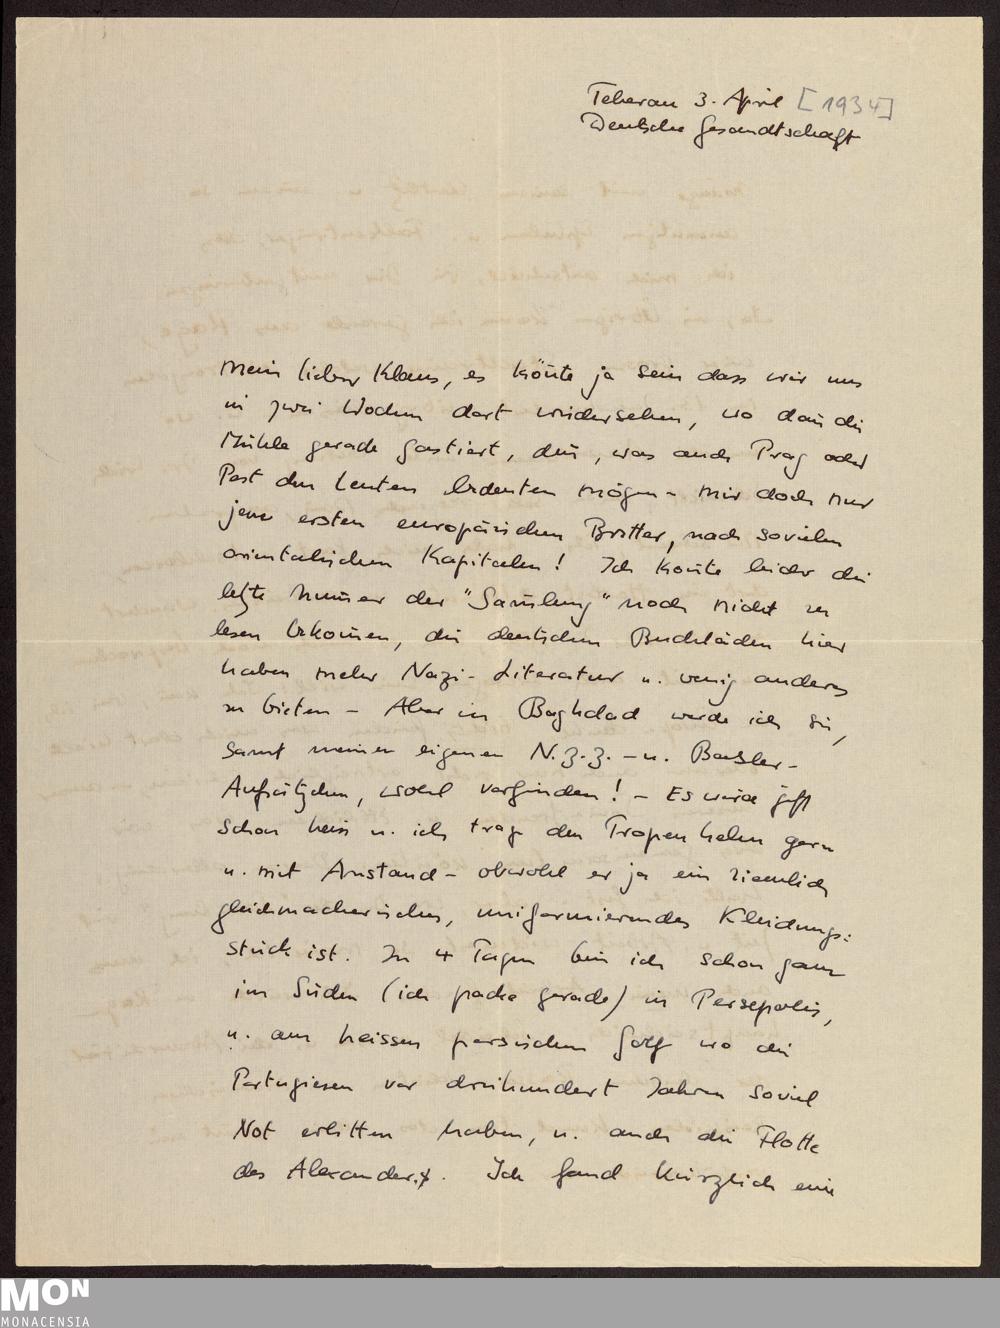 Teheran 3. April [1934]
Deutsche Gesandtschaft
Mein lieber Klaus, es könte ja sein dass wir uns
in zwei Wochen dort wiedersehen, wo dan die
Mühle gerade gastiert, den, was auch Prag oder
Pest den Leuten bedeuten mögen – mir doch nur
jene ersten europäischen Bretter, nach sovielen
orientalischen Kapitalen! Ich konte leider die
letzte Numer der "Samlung" noch nicht zu
lesen bekomen, die deutschen Buchläden hier
haben mehr Nazi-Literatur u. wenig anderes
zu bieten – Aber in Baghdad werde ich sie,
samt meinen eigenen N.Z.Z. – u. Basler-
Aufsätzchen, wohl vorfinden! – Es wird jetzt
schon heiss u. ich trage den Tropenhelm gern
u. mit Anstand – obwohl er ja ein ziemlich
gleichmacherisches, uniformierendes Kleidungs-
stück ist. In 4 Tagen bin ich schon ganz
im Süden (ich packe gerade) in Persepolis,
u. am heissen persischen Golf wo die
Portugiesen vor dreihundert Jahren soviel
Not erlitten haben, u. auch die Flotte
des Alexander. Ich fand kürzlich eine
MON
MONACENSIA